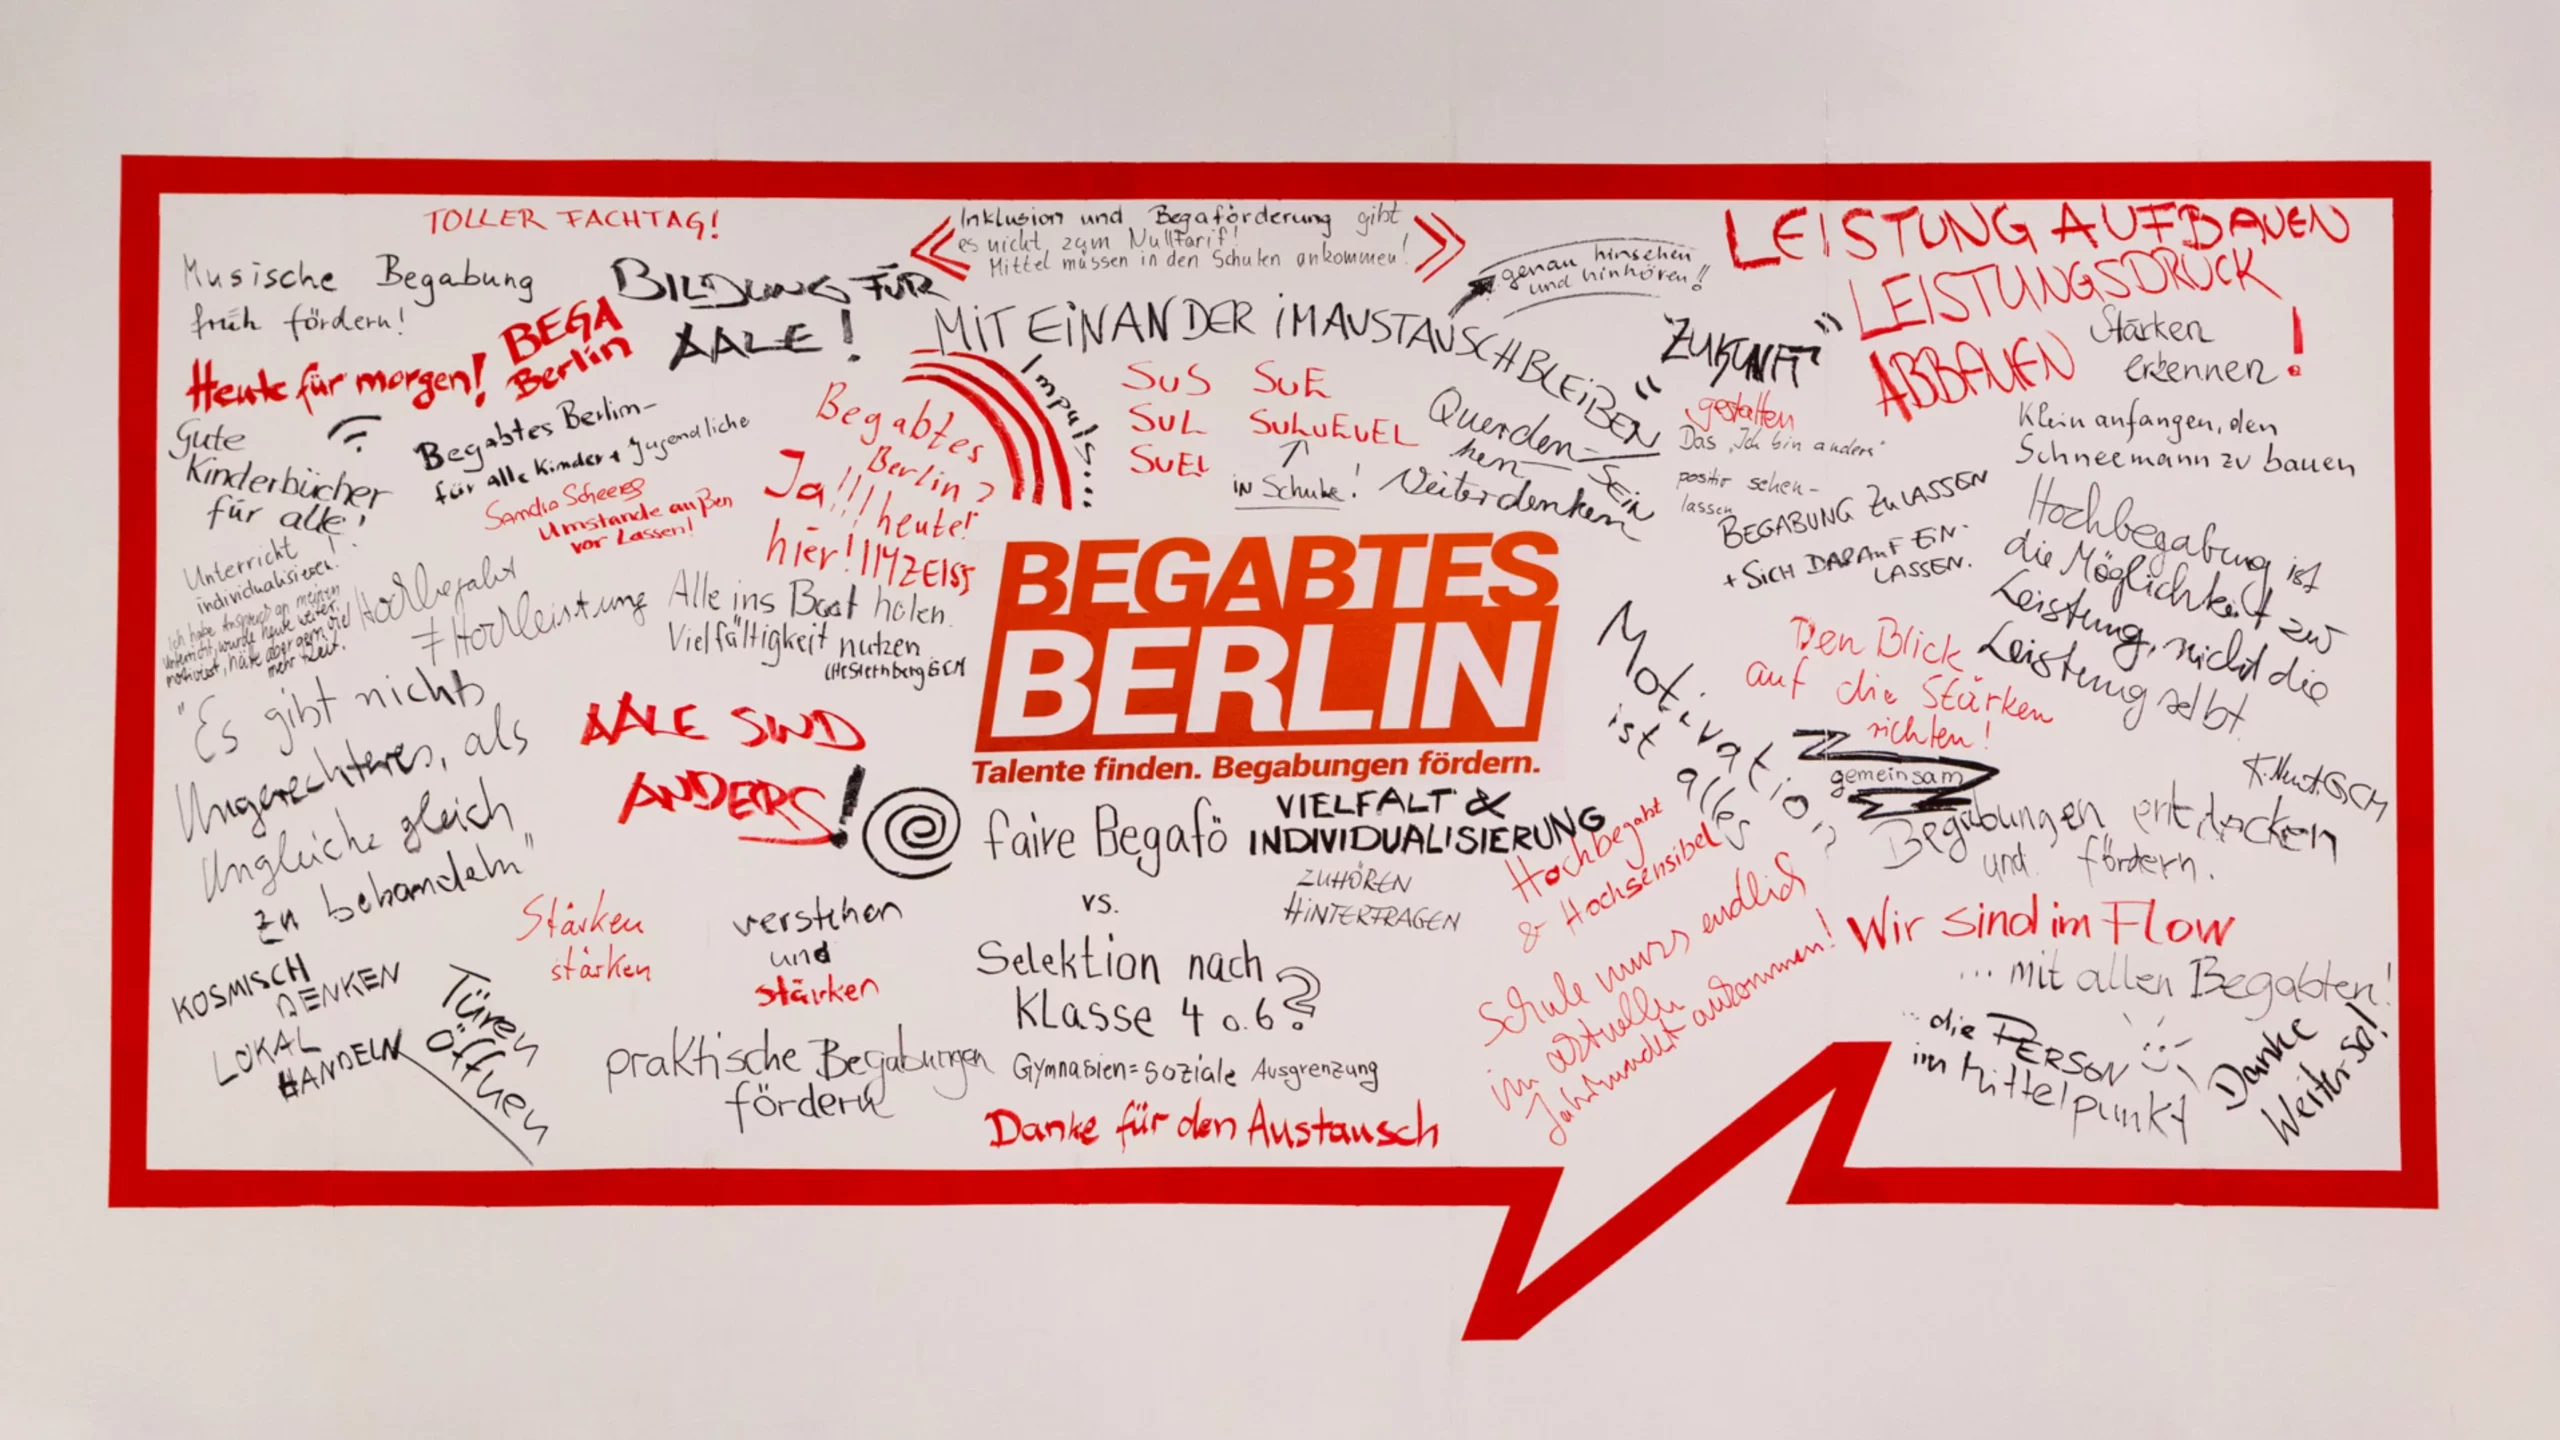 TOLLER FACHTAG!
Musische Begabung
früh fördern!
Heute für morgen!
BEGA
Berlin
BILDUNG FÜR
AALE!
Inklusion und Begaförderung gibt
es nicht zum Nulltarif!
Mittel müssen in den Schulen ankommen!
genau hinsehen
und hinhören!!
MITEINANDER IM AUSTAUSCH BLEIBEN
LEISTUNG AUFBAUEN
LEISTUNGSDRUCK
ABBAUEN!
"ZUKUNFT"
gestalten
Stärken
erkennen.
Klein anfangen, den
Schneemann zu bauen
Gute
Kinderbücher
für alle!
Begabtes Berlin-
für alle Kinder + Jugendliche
Sandra Scheeres
Umstände außen
vor Lassen!
Begabtes
Berlin?
Ja!!! heute!
hier!
Impuls...
SuS SuE
SuL SuLuEuEL
SuEL
in Schule!
Querden-
ken
SEIN
Weiterdenken
Das "Ich bin anders"
positiv sehen-
lassen
BEGABUNG ZULASSEN
+ SICH DARAUF EIN-
LASSEN.
Hochbegabung ist
die Möglichkeit zur
Leistung, nicht die
Leistung selbt.
Unterricht
individualisieren!
Ich habe Anspruch an meinen
Unterricht, wurde heute weiter
motiviert, hätte aber gern viel
mehr Zeit!
Hochbegabt
≠ Hochleistung
Alle ins Boot holen.
Vielfältigkeit nutzen
BEGABTES
BERLIN
Talente finden. Begabungen fördern.
"Es gibt nichts
Ungerechteres, als
Ungleiche gleich
zu behandeln"
AALE SIND
ANDERS!
Motivation
ist alles
Den Blick
auf die Stärken
richten!
gemeinsam
Begabungen entdecken
und fördern.
faire Begafö
vs.
Selektion nach
Klasse 4 o. 6?
VIELFALT &
INDIVIDUALISIERUNG
ZUHÖREN
HINTERFRAGEN
Hochbegabt
& Hochsensibel
Schule muss endlich
im aktuellen
Jahrhundert ankommen!
Wir sind im Flow
... mit allen Begabten!
... die PERSON
im Mittelpunkt
Danke
Weiter so!
Stärken
stärken
verstehen
und
stärken
KOSMISCH
DENKEN
LOKAL
HANDELN
Türen
öffnen
praktische Begabungen
fördern
Gymnasien = soziale Ausgrenzung
Danke für den Austausch